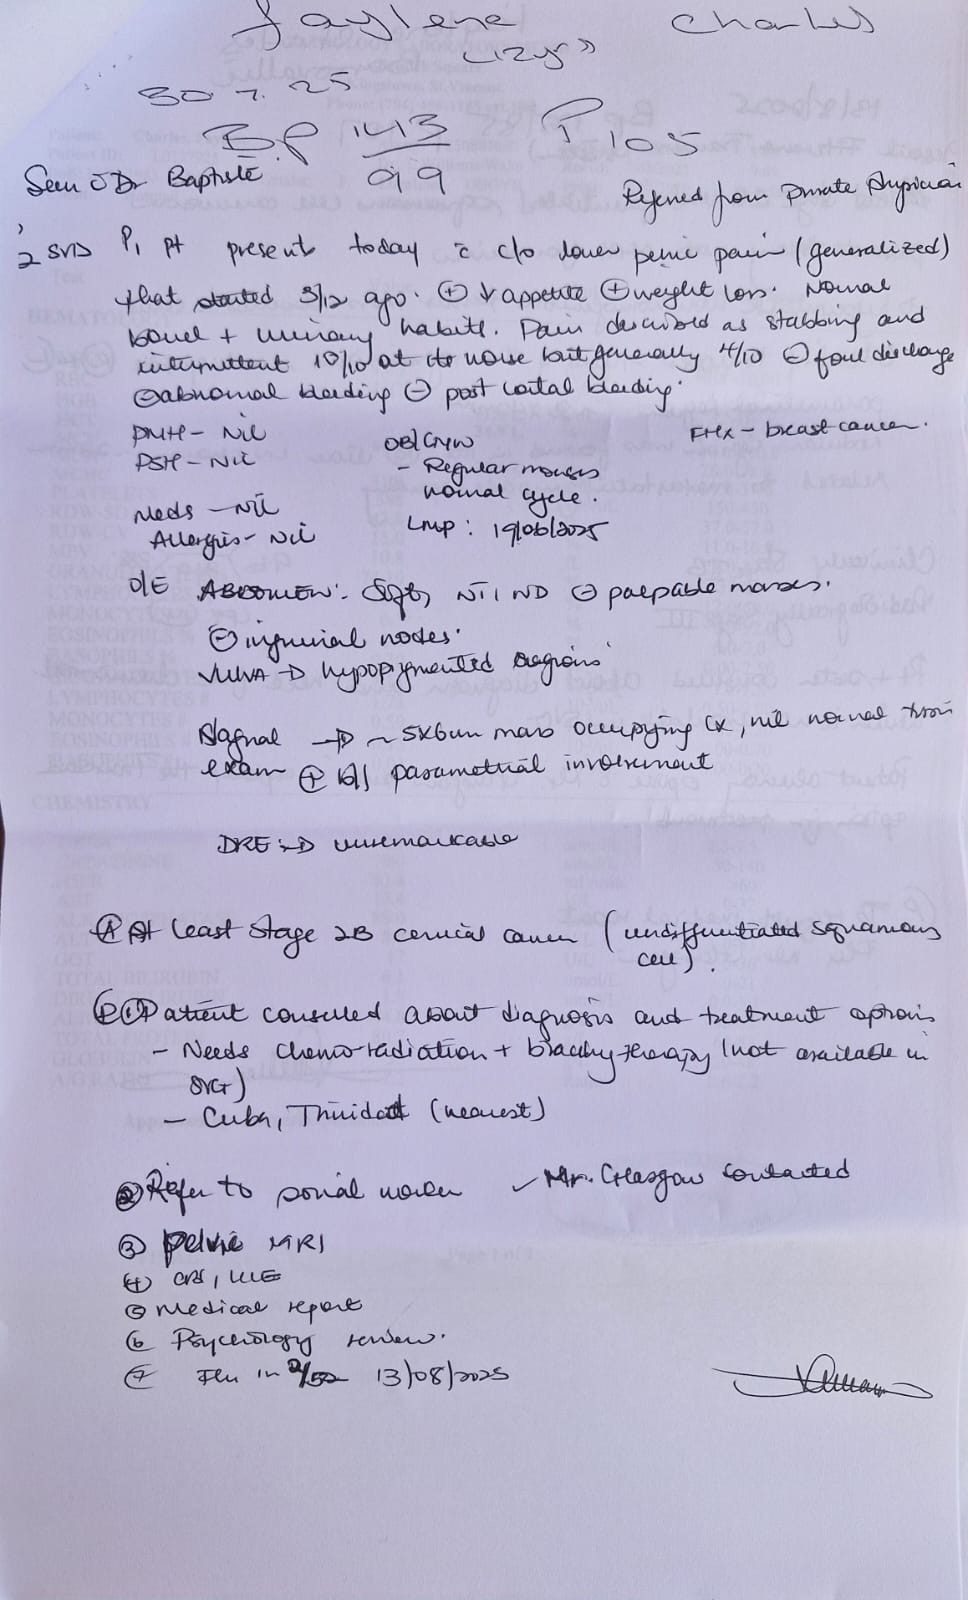 Jaylene Charles
30.7.25
BP 143 P 105
99
Seen c̄ Dr Baptiste
Referred from Private Physician
2 SVD P, pt presents today c̄ c/o lower pelvic pain (generalized)
that started 3/12 ago. ⊕ ↓ appetite ⊕ weight loss. Normal
bowel + urinary habits. Pain described as stabbing and
intermittent 10/10 at its worse but generally 4/10 ⊖ foul discharge
⊖ abnormal bleeding ⊖ post coital bleeding.
PMH - Nil
PSH - Nil
Meds - Nil
Allergies - Nil
OB/GYN
- Regular menses
normal cycle.
LMP: 19/06/2025
FHx - breast cancer.
O/E ABDOMEN: Soft, NT, ND ⊖ palpable masses.
⊖ inguinal nodes.
VULVA → hypopigmented regions
Vaginal → ~ 5x6cm mass occupying Cx, nil normal
exam ⊕ b/l parametrial involvement
DRE → unremarkable
Ⓐ At least Stage 2B cervical cancer (undifferentiated squamous
cell).
Ⓟ ① Patient counselled about diagnosis and treatment options
- Needs chemo-radiation + brachytherapy (not available in
SVG)
- Cuba, Trinidad (nearest)
② Refer to social worker ✓ Mr. Glasgow contacted
③ Pelvic MRI
④ CBC, U/E
⑤ Medical report
⑥ Psychology review.
⑦ F/u in 2/52 13/08/2025